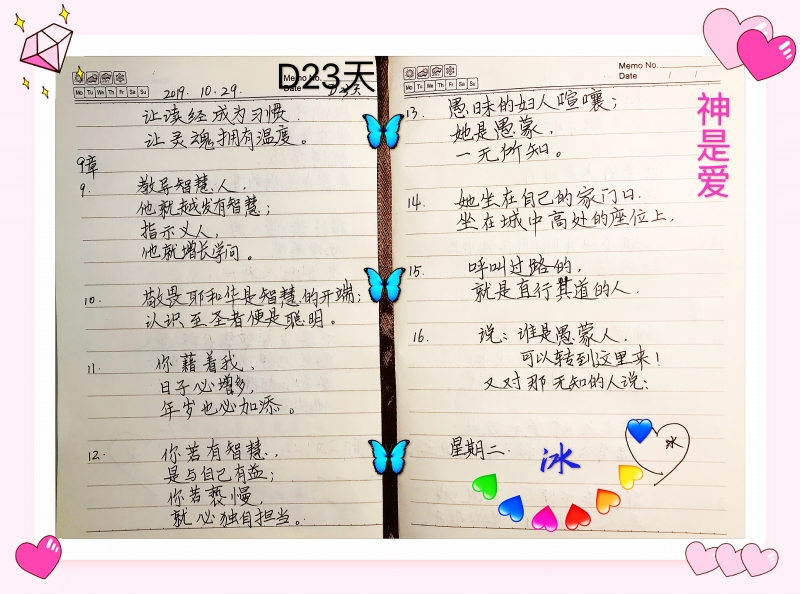 D23天
Memo No.
Date
Mo Tu We Th Fr Sa Su
2019. 10. 29.
D23天
让读经成为习惯.
让灵魂拥有温度。
9章
9. 教导智慧人,
他就越发有智慧;
指示义人,
他就增长学问。
10. 敬畏耶和华是智慧的开端;
认识至圣者便是聪明。
11. 你藉着我,
日子必增多,
年岁也必加添。
12. 你若有智慧,
是与自己有益;
你若亵慢,
就必独自担当。
Memo No.
Date / /
Mo Tu We Th Fr Sa Su
13. 愚昧的妇人喧嚷;
她是愚蒙,
一无所知。
14. 她坐在自己的家门口.
坐在城中高处的座位上,
15. 呼叫过路的,
就是直行其道的人.
16. 说:谁是愚蒙人,
可以转到这里来!
又对那无知的人说:
星期二.
冰
冰
神是爱